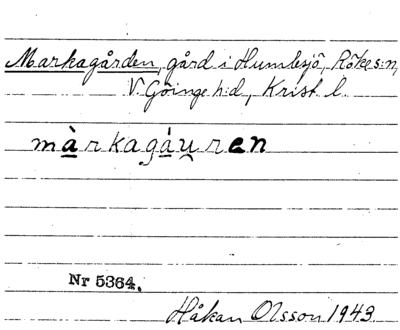 Markagården, gård i Humlesjö, Röke s:n,
V. Göinge h:d, Krist. l.
màrkagáu̯ren
Nr 5364.
Håkan Olsson 1943.